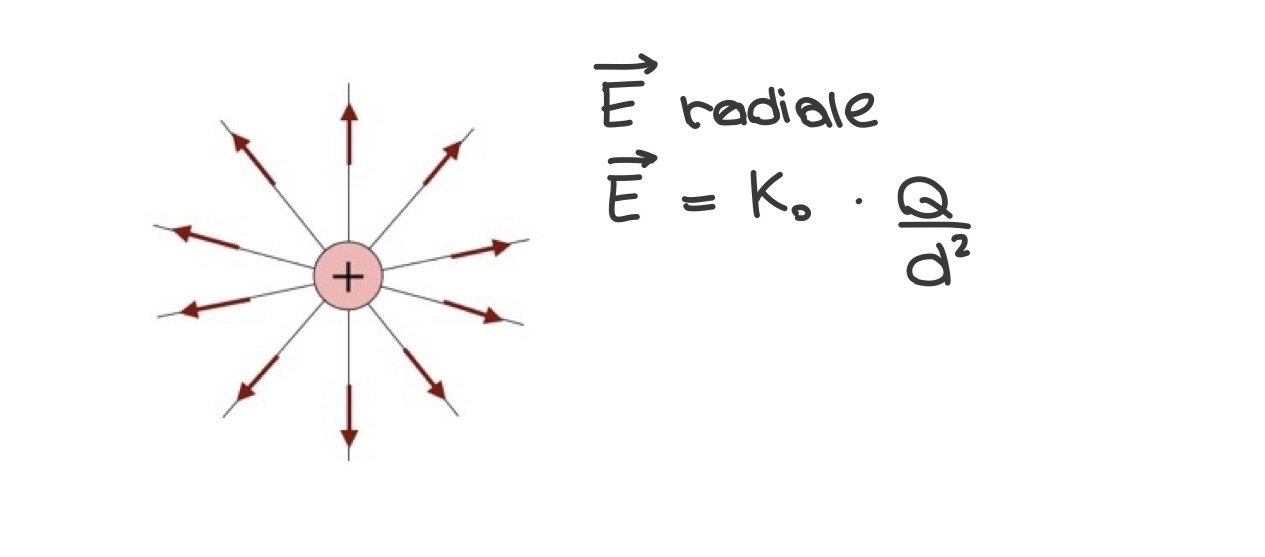 +
E⃗ radiale
E⃗ = K₀ · Q/d²